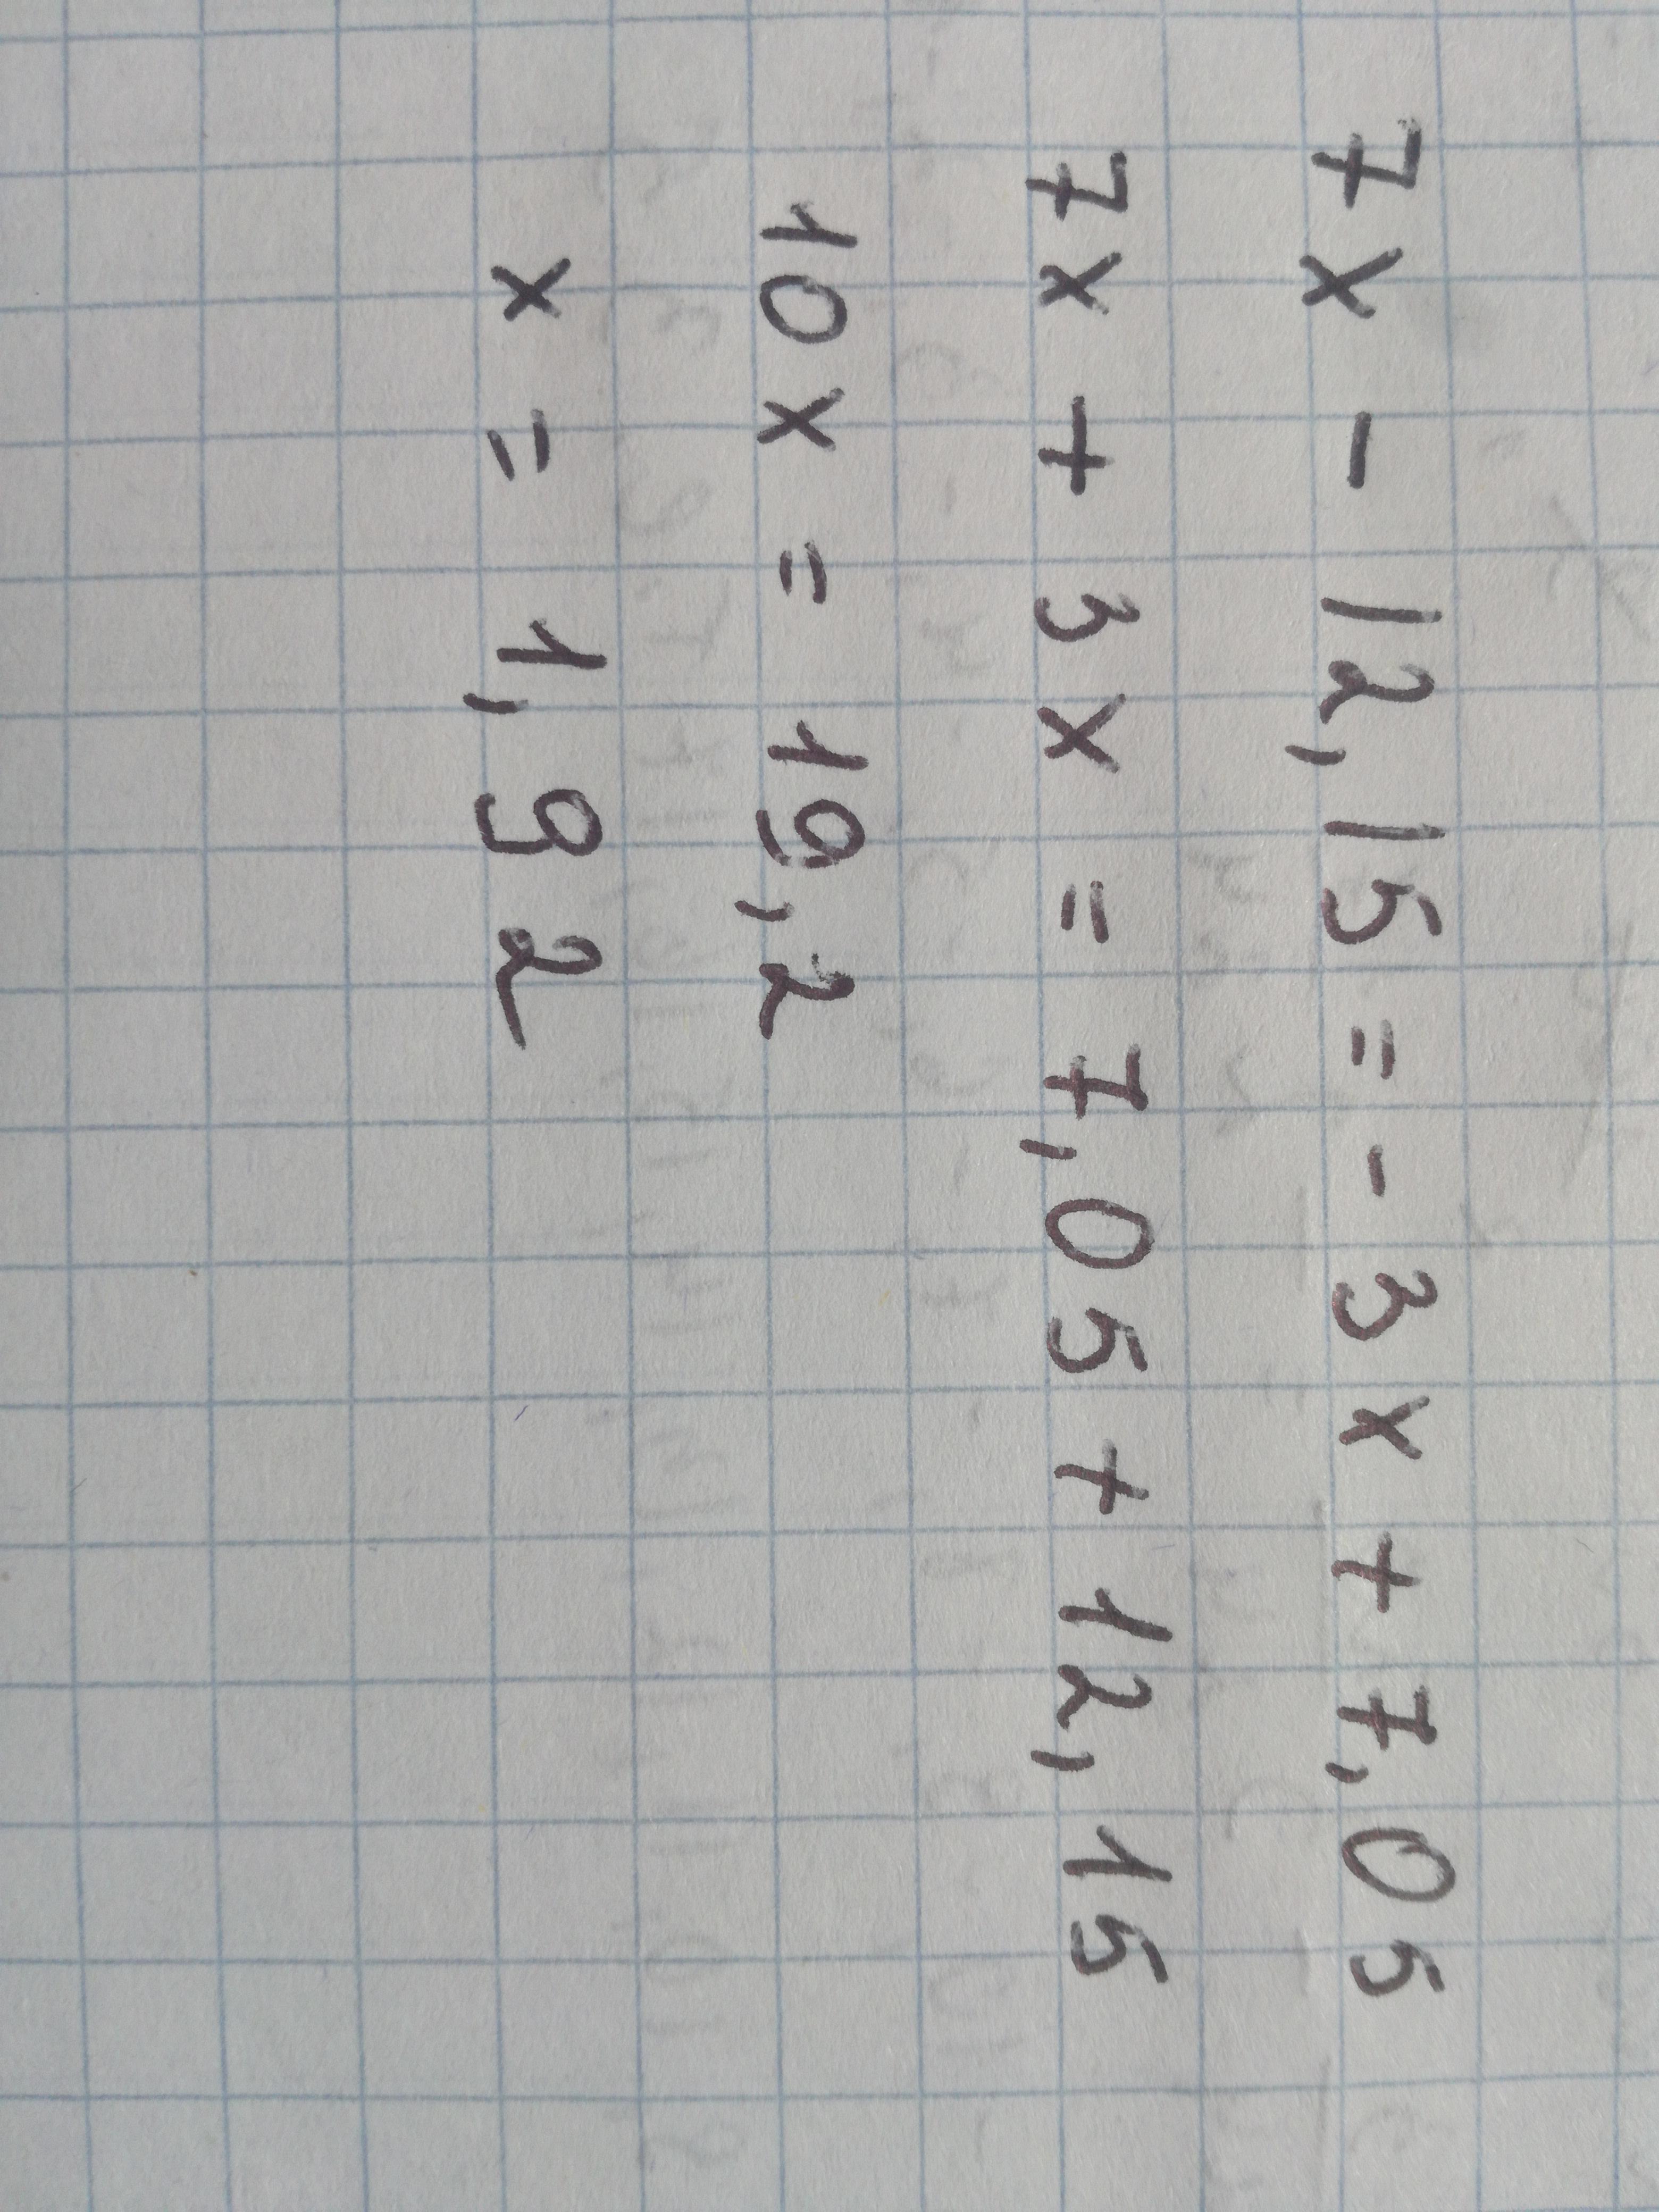 7x - 12,15 = - 3x + 7,05
7x + 3x = 7,05 + 12,15
10x = 19,2
x = 1,92